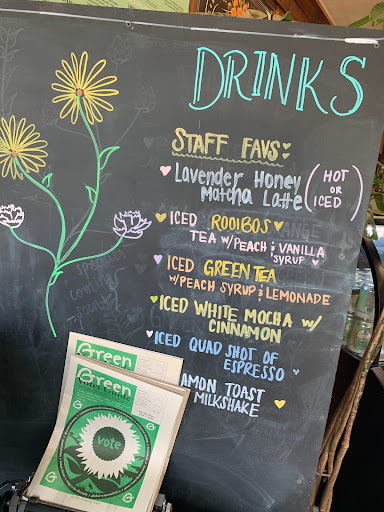 DRINKS
STAFF FAVS
Lavender Honey
Matcha Latte (HOT
OR
ICED)
ICED ROOIBOS
TEA W/PEACH & VANILLA
SYRUP
ICED GREEN TEA
W/PEACH SYRUP & LEMONADE
ICED WHITE MOCHA W/
CINNAMON
ICED QUAD SHOT OF
ESPRESSO
AMON TOAST
MILKSHAKE
Green
Green
Voter Guide
vote